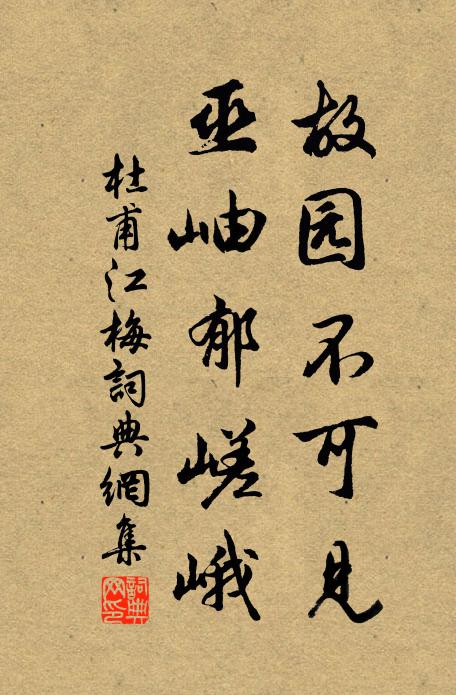 故园不可见
巫岫郁嵯峨
杜甫江梅詞典網集
詞典网印